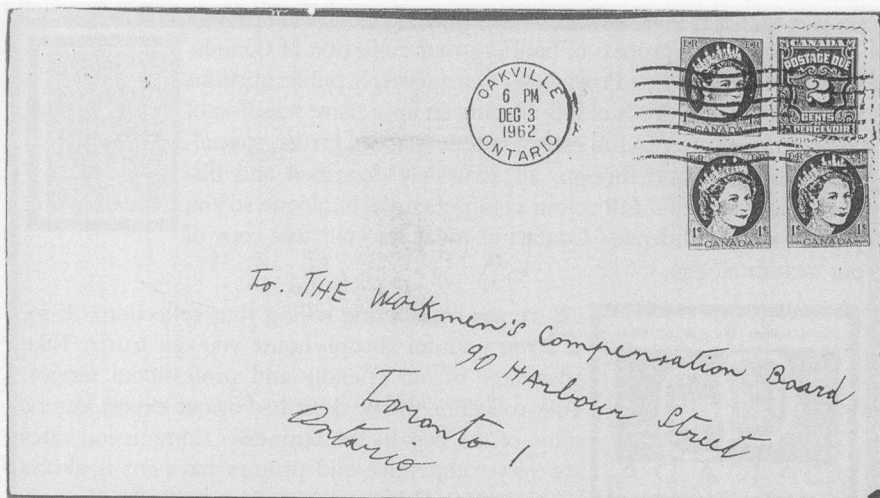 OAKVILLE
6 PM
DEC 3
1962
ONTARIO
CANADA
CANADA
POSTAGE DUE
2
CENTS
A PERCEVOIR
1¢ 1¢
CANADA
1¢ 1¢
CANADA
To. THE Workmen's Compensation Board
90 Harbour Street
Toronto 1
Ontario